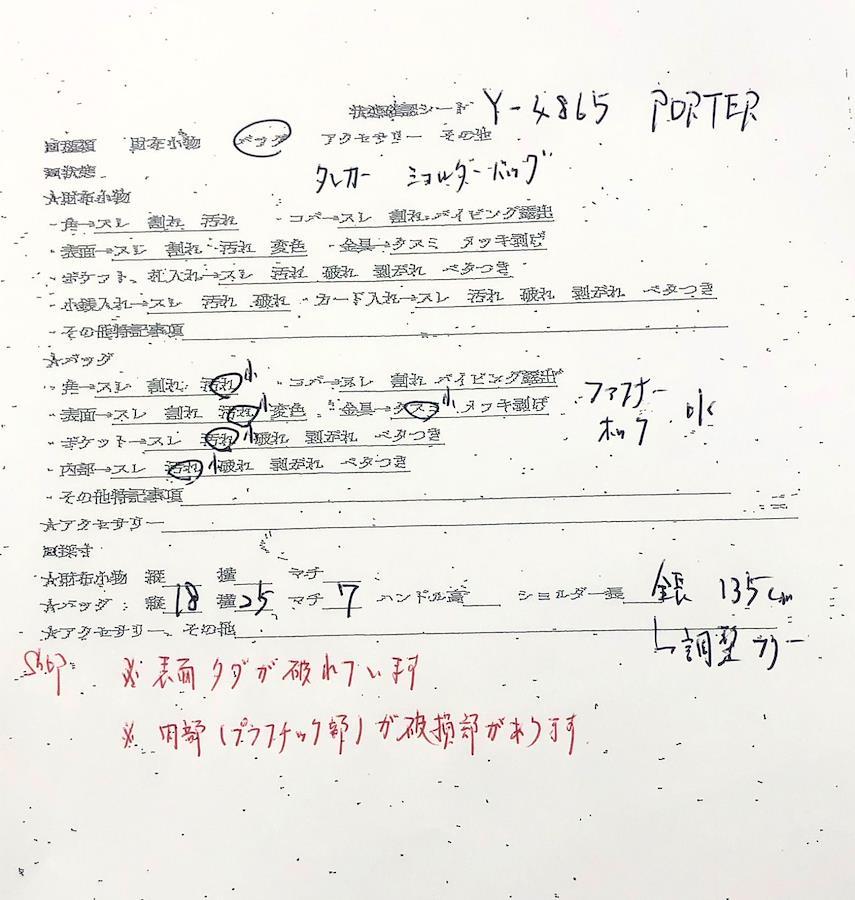 状態確認シート Y-4865 PORTER
■種類 財布小物 バッグ アクセサリー その他
■状態 タンカー ショルダーバッグ
★財布小物
・角→スレ 割れ 汚れ ・コバ→スレ 割れ パイピング露出
・表面→スレ 割れ 汚れ 変色 ・金具→クスミ メッキ剥げ
・ポケット、札入れ→スレ 汚れ 破れ 剥がれ ベタつき
・小銭入れ→スレ 汚れ 破れ ・カード入れ→スレ 汚れ 破れ 剥がれ ベタつき
・その他特記事項
★バッグ
・角→スレ 割れ 汚れ 小 ・コバ→スレ 割れ パイピング露出
・表面→スレ 割れ 汚れ 小 変色 ・金具→クスミ 小 メッキ剥げ ファスナー
・ポケット→スレ 汚れ 小 破れ 剥がれ ベタつき ホック OK
・内部→スレ 汚れ 小 破れ 剥がれ ベタつき
・その他特記事項
★アクセサリー
■採寸
★財布小物 縦 横 マチ
★バッグ:縦 18 横 25 マチ 7 ハンドル高 ショルダー長 全長 135cm
★アクセサリー、その他 調整フリー
※ 表面タグが破れています
※ 内部(プラスチック部)が破損部があります